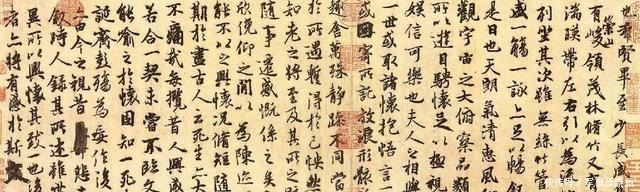 也羣賢畢至少長
有崇山峻領茂林脩竹又
湍暎帶左右引以為
列坐其次雖無絲竹
盛一觴一詠亦足以暢
是日也天朗氣清惠風
觀宇宙之大俯察品類
所以遊目騁懷足以極視
娛信可樂也夫人之相與
一世或取諸懷抱悟言一
或因寄所託放浪形骸
趣舍萬殊靜躁不同當
於所遇蹔得於己怏然
知老之將至及其所之
隨事遷感慨係之矣
欣俛仰之閒以為陳迹
能不以之興懷況脩短隨
期於盡古人云死生亦大
不痛哉每攬昔人興感
若合一契未嘗不臨文
能喻之於懷固知一死
誕齊彭殤為妄作後
亦由今之視昔
敘時人錄其所述雖世
異所以興懷其致一也
者亦將有感於斯